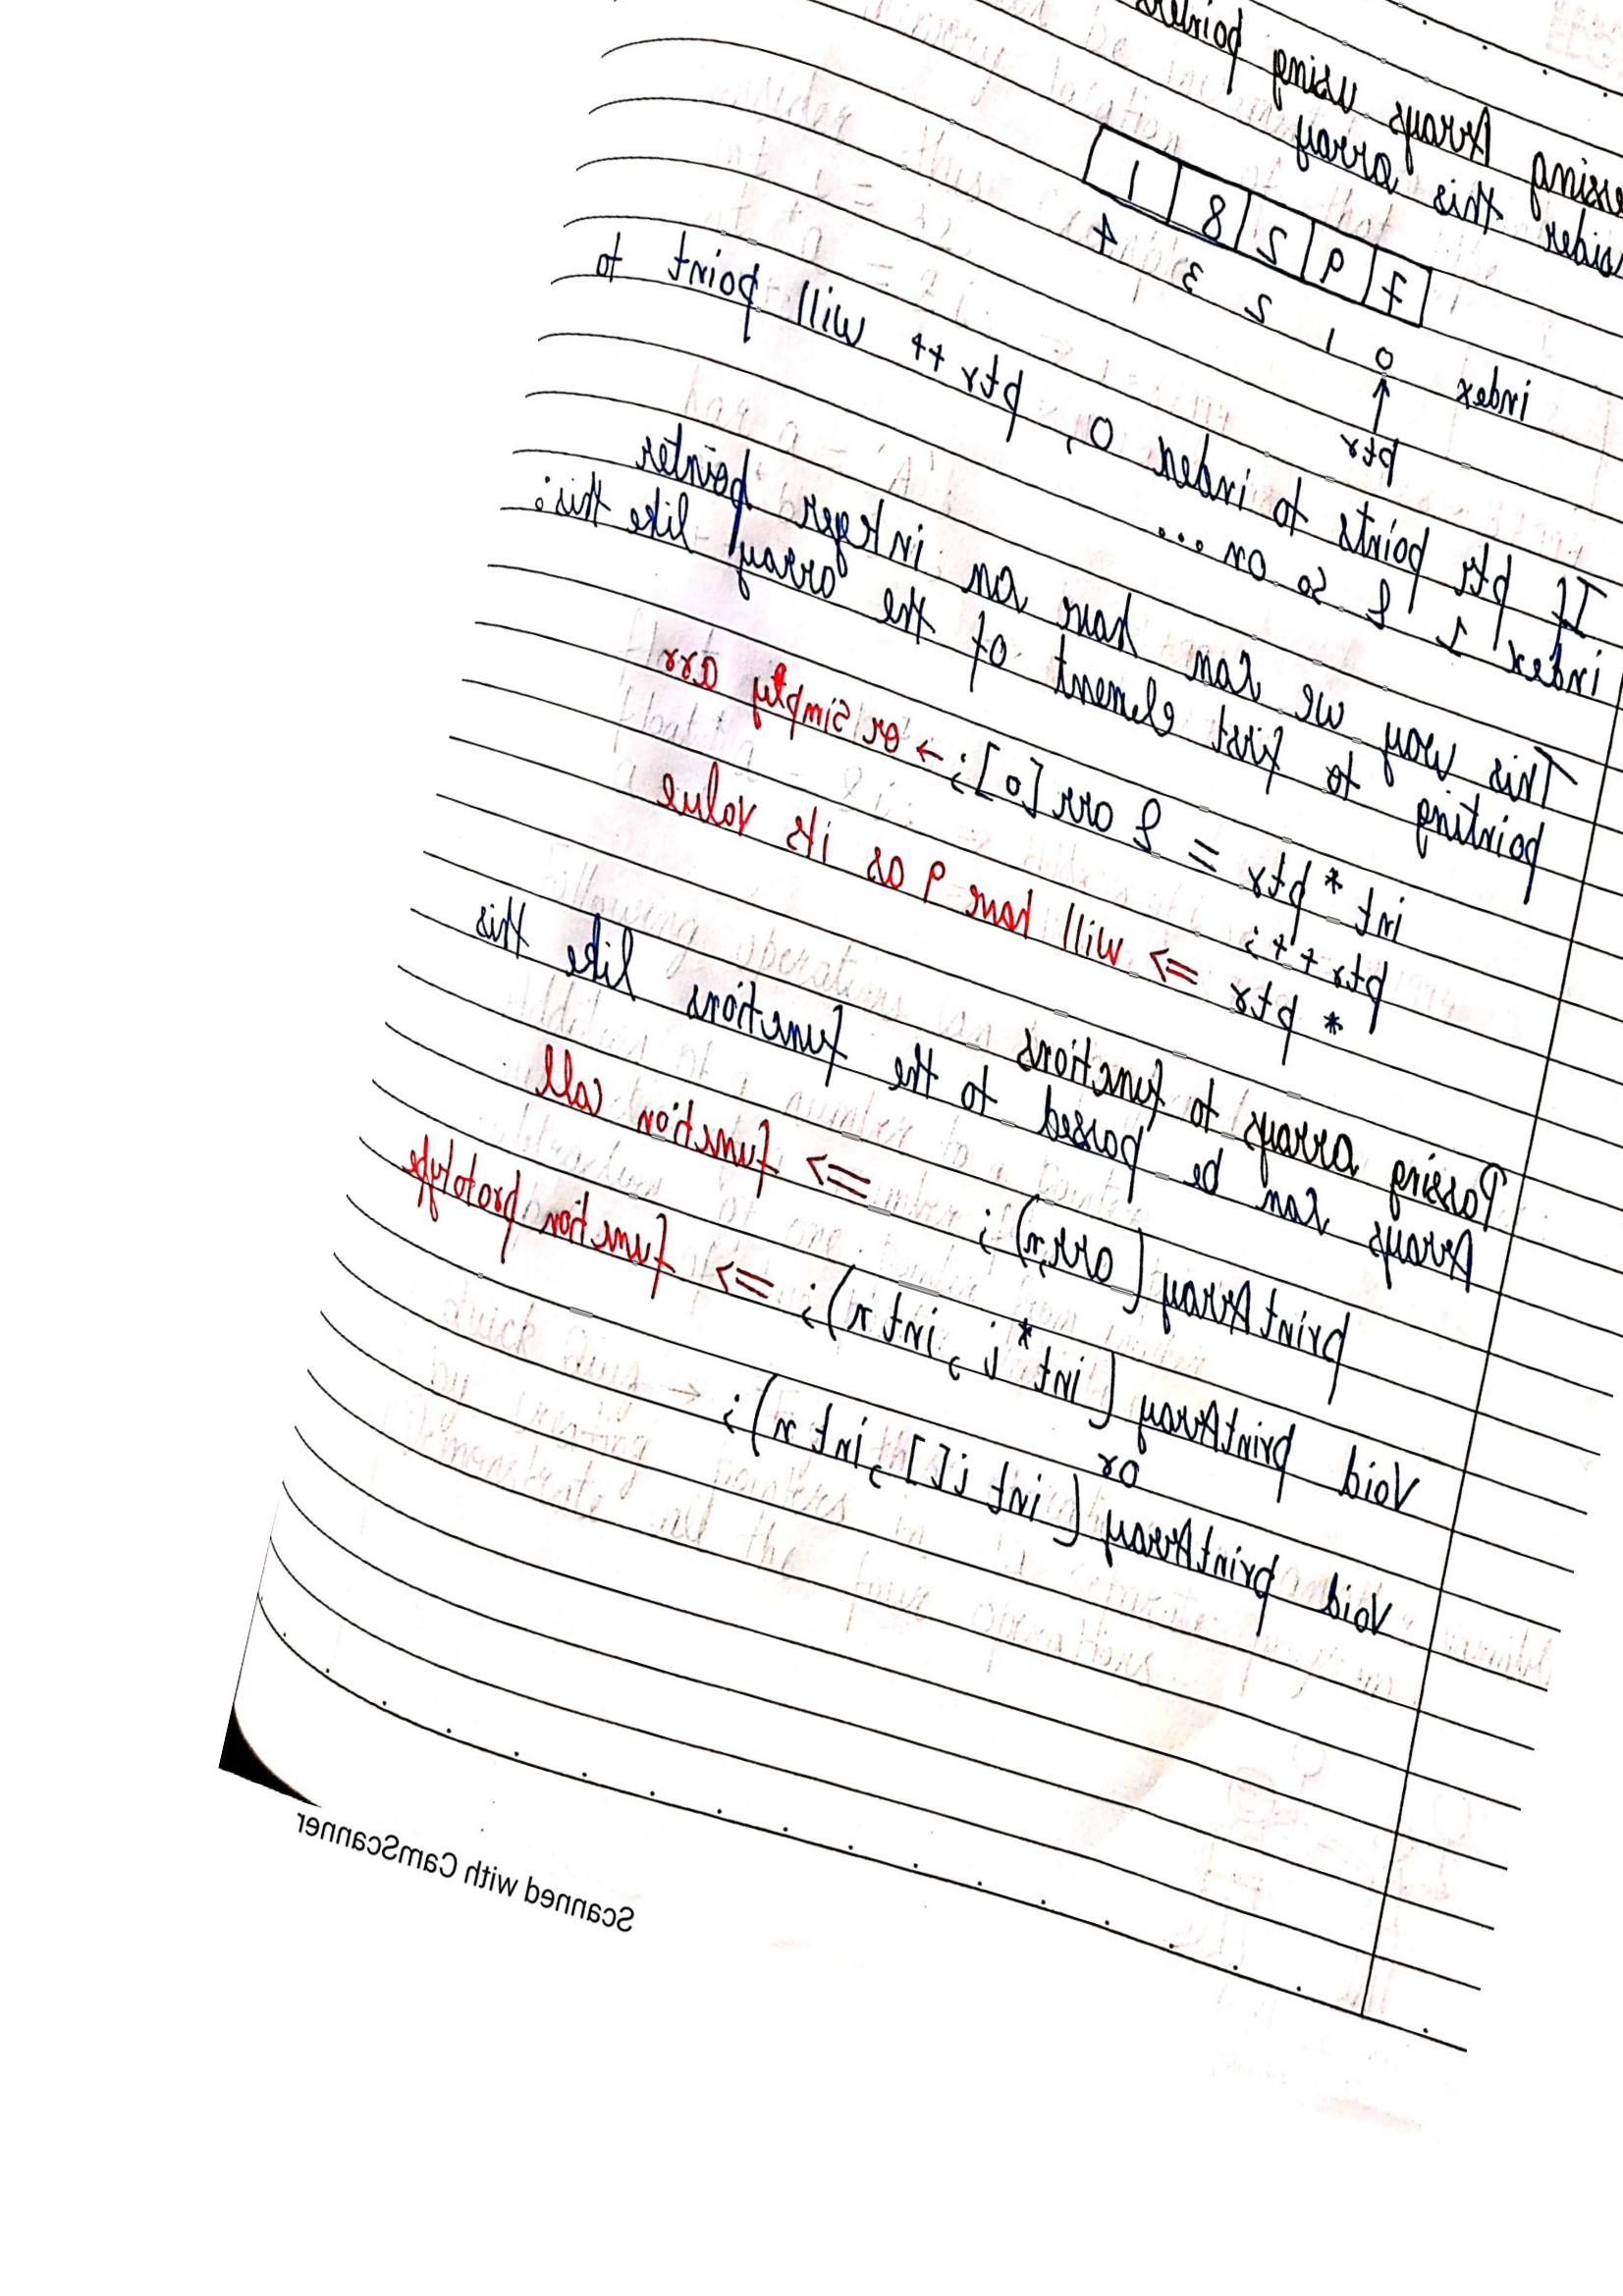 Arrays using pointers
this array
7 9 2 8 1
index 0 1 2 3 4
ptr
If ptr points to index 0, ptr ++ will point to
index 1 & so on ...
This way we can have an integer pointer
pointing to first element of the array like this:
int * ptr = & arr [0]; → or simply arr
ptr ++;
* ptr => will have 9 as its value
Passing arrays to functions
Arrays can be passed to the functions like this
printArray (arr,n); => function call
Void printArray (int * i, int n); => function prototype
or
Void printArray (int i[], int n);
Scanned with CamScanner